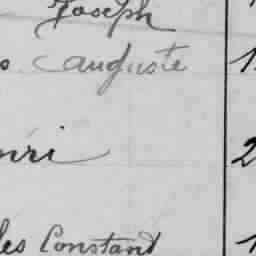 Joseph
s Auguste 1
nri 2
les Constant 1